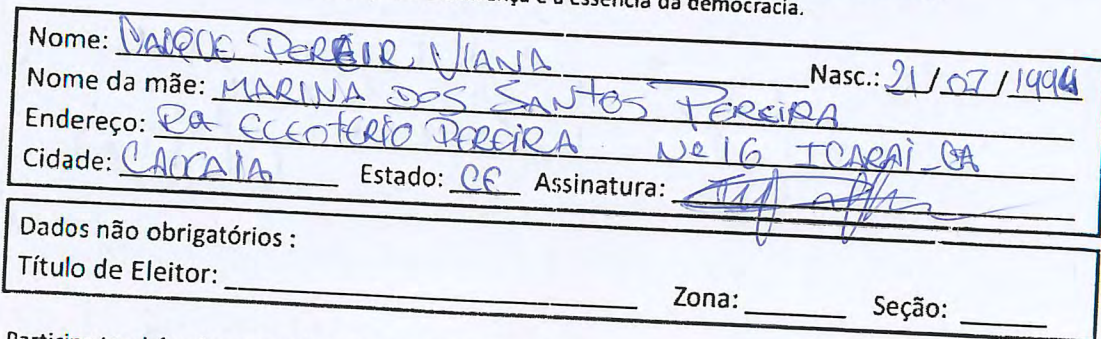 a essência da democracia.
Nome: CAIQUE PEREIR VIANA Nasc.: 21/07/1994
Nome da mãe: MARINA DOS SANTOS PEREIRA
Endereço: Ra ELEOTÉRIO PEREIRA Nº 16 ICARAÍ
Cidade: CAUCAIA Estado: CE Assinatura:
Dados não obrigatórios :
Título de Eleitor: Zona: Seção: